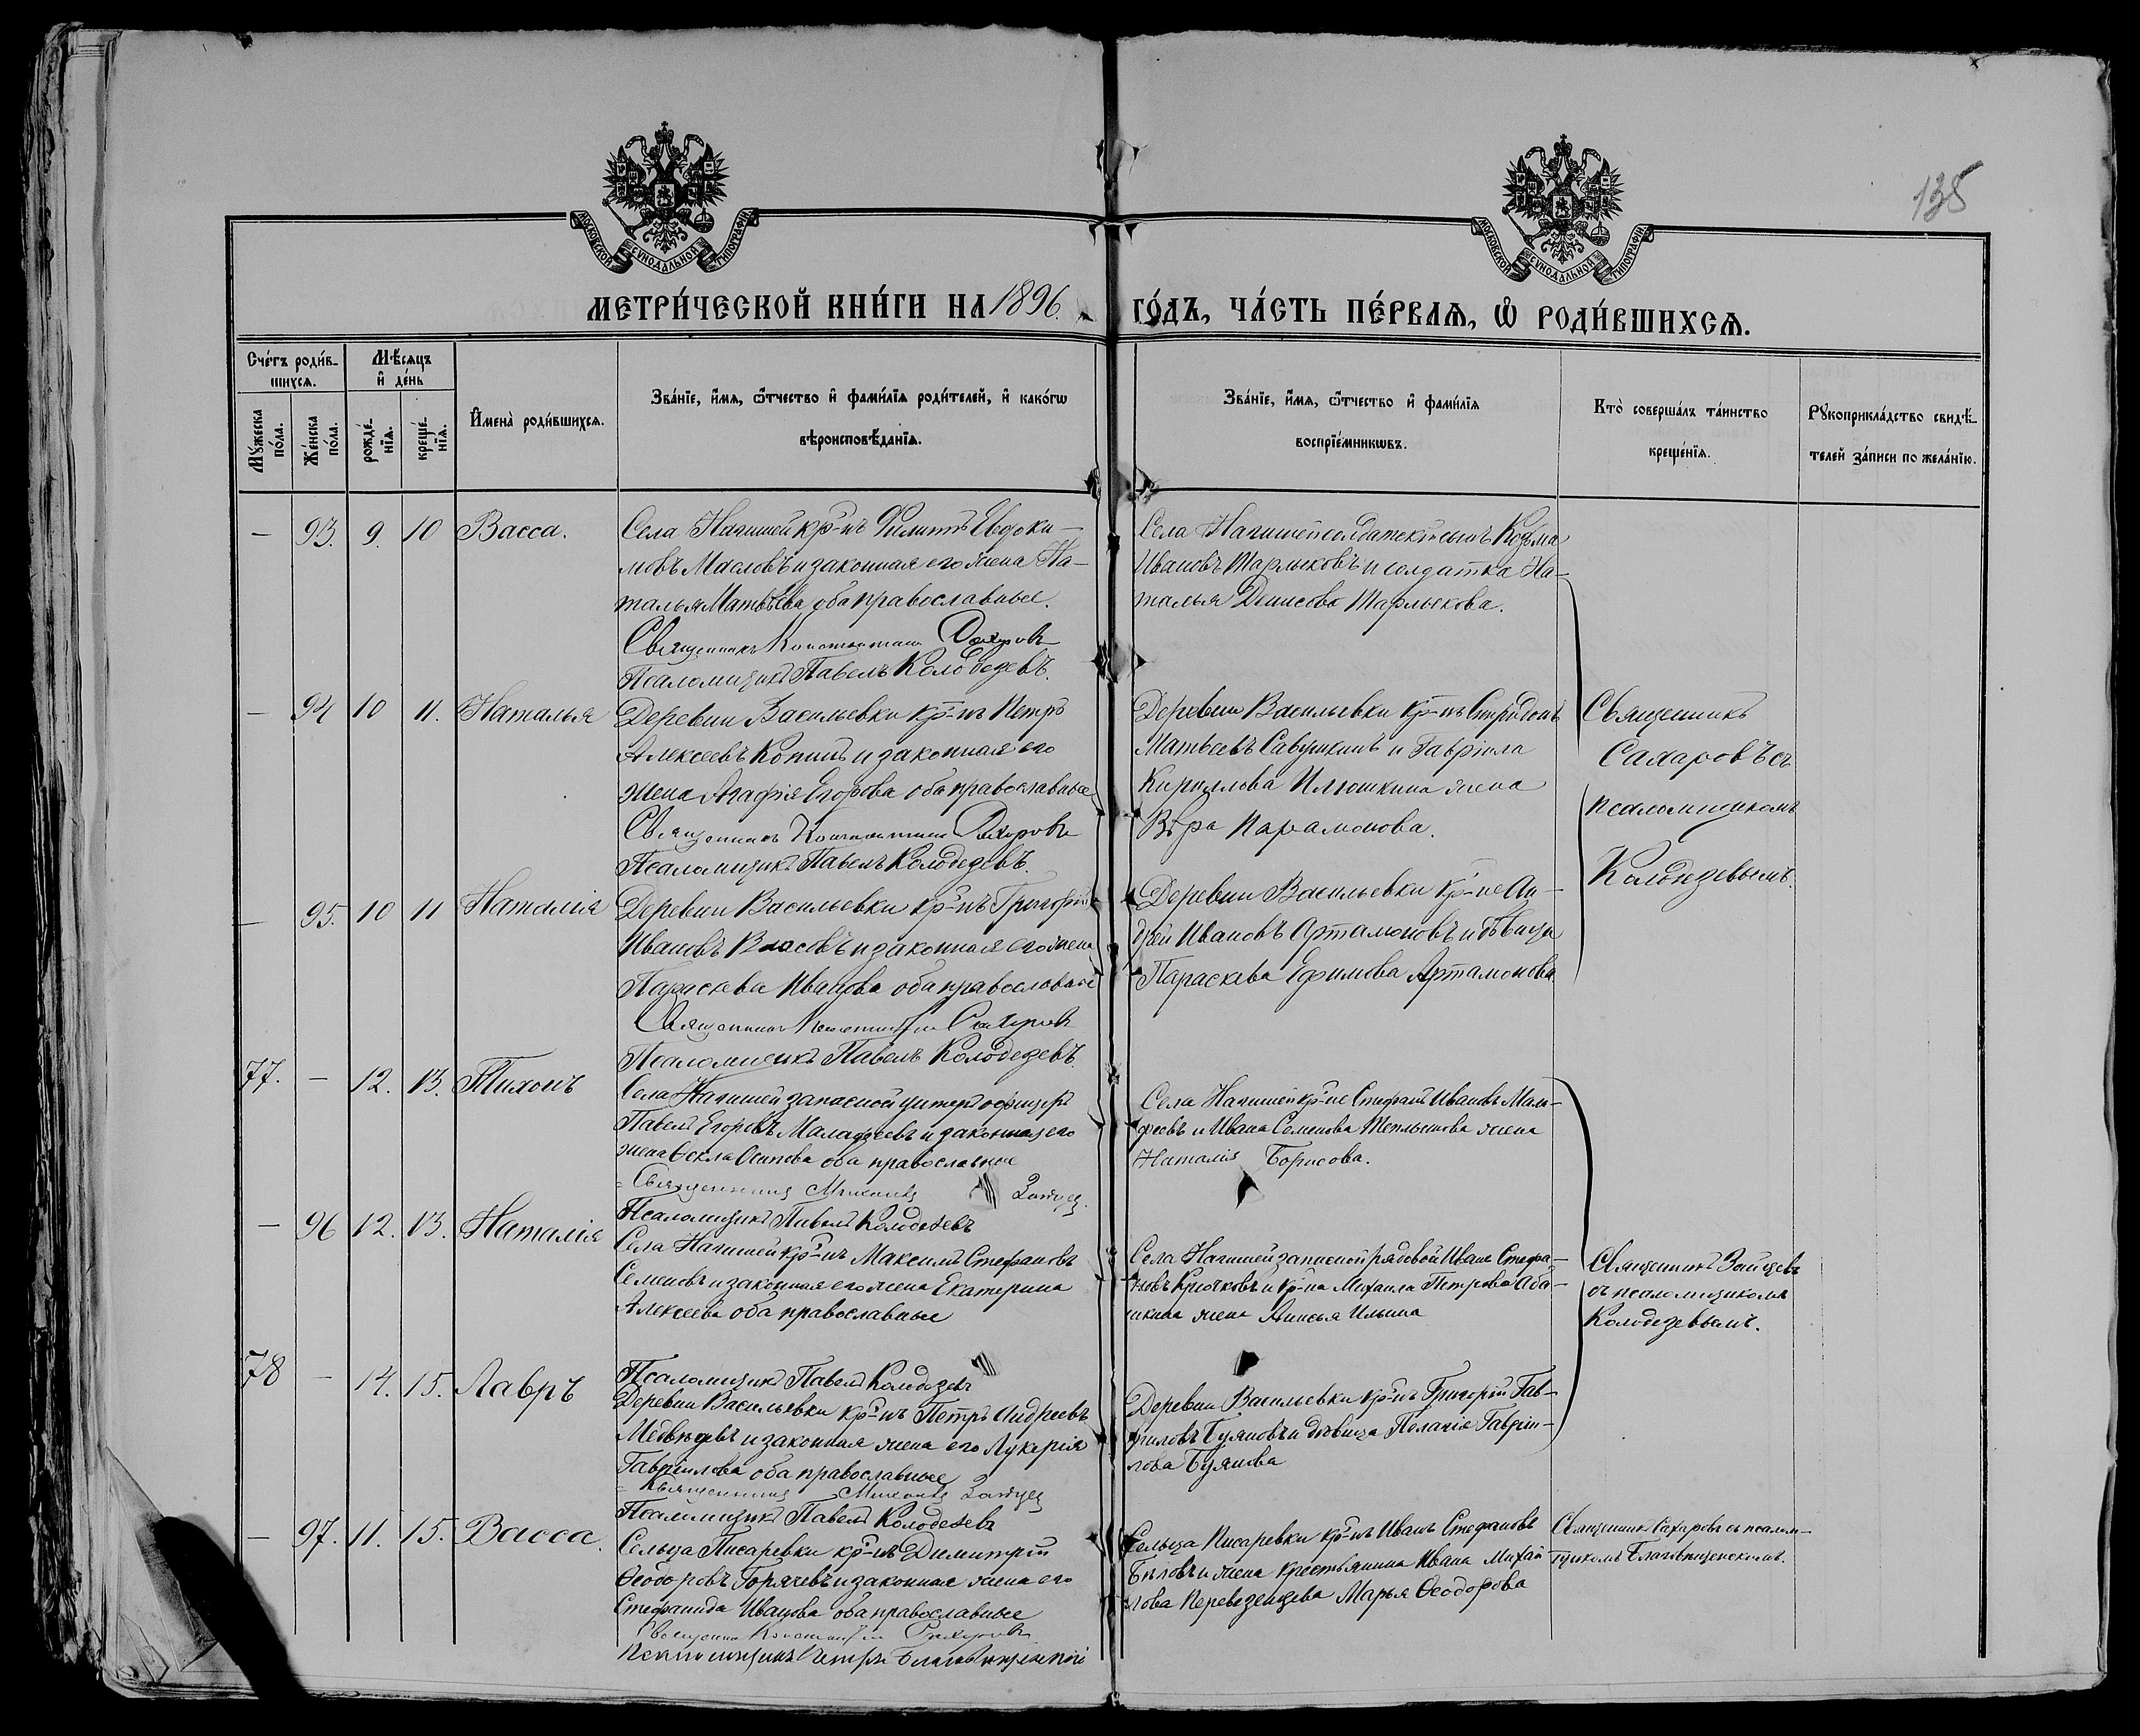 138
МОСКОВСКОЙ СѴНОДАЛЬНОЙ ТИПОГРАФІИ
МОСКОВСКОЙ СѴНОДАЛЬНОЙ ТИПОГРАФІИ
МЕТРИ́ЧЕСКОЙ КНИ́ГИ НА 1896. ГО́ДЪ, ЧА́СТЬ ПЕ́РВАѦ, Ѡ РОДИ́ВШИХСѦ.
Сче́тъ роди́в-
шихсѧ.
Мѣ́сѧцъ
и҆ де́нь
Мꙋ́жеска
по́ла.
Же́нска
по́ла.
рожде́-
нїѧ.
креще́-
нїѧ.
И҆мена̀ роди́вшихсѧ.
Зва́нїе, и҆́мѧ, ѻ҆́тчество и҆ фами́лїѧ роди́телей, и҆ како́гѡ
вѣроисповѣ́данїѧ.
Зва́нїе, и҆́мѧ, ѻ҆́тчество и҆ фами́лїѧ
воспрїе́мникѡвъ.
Кто̀ соверша́лъ та́инство
креще́нїѧ.
Рꙋкоприкла́дство свидѣ́-
телей за́писи по жела́нїю.
— 93. 9. 10 Васса.
Села Нагишей кр-нъ Филиппъ Евдоки-
мовъ Масловъ и законная его жена На-
талья Матвѣева оба православные.
Священникъ Константинъ Сахаровъ
Псаломщикъ Павелъ Колодезевъ.
Села Нагишей солдатскій сынъ Козьма
Ивановъ Шарлыковъ и солдатка На-
талья Денисова Шарлыкова.
— 94 10 11. Наталья
Деревни Васильевки кр-нъ Петръ
Алексеевъ Копинъ и законная его
жена Агафія Егорова оба православные
Священникъ Константинъ Сахаровъ
Псаломщикъ Павелъ Колодезевъ.
Деревни Васильевки кр-нъ Спиридонъ
Матвеевъ Савушкинъ и Гавріила
Кириллова Илюшкина жена
Вѣра Парамонова.
Священникъ
Сахаровъ съ
псаломщикомъ
Колодезевымъ.
— 95. 10 11 Наталія
Деревни Васильевки кр-нъ Григорій
Ивановъ Власовъ и законная его жена
Параскева Иванова оба православные
Священникъ Константинъ Сахаровъ
Псаломщикъ Павелъ Колодезевъ.
Деревни Васильевки кр-не Ан-
дрей Ивановъ Артамоновъ и дѣвица
Параскева Ефимова Артамонова.
77. — 12. 13. Тихонъ
Села Нагишей запасной унтеръ офицеръ
Павелъ Егоровъ Маладеевъ и законная его
жена Ѳекла Осипова оба православные
Священникъ Михаилъ Зайцевъ.
Псаломщикъ Павелъ Колодезевъ
Села Нагишей кр-не Стефанъ Ивановъ Мала-
феевъ и Ивана Семенова жена
Наталія Борисова.
— 96 12. 13. Наталія
Села Нагишей кр-нъ Максимъ Стефановъ
Семеновъ и законная его жена Екатерина
Алексеева оба православные
Псаломщикъ Павелъ Колодезевъ
Села Нагишей запасной рядовой Иванъ Стефа-
новъ Крючковъ и кр-на Михаила Петрова Аба-
шкина жена Анисья Ильина
Священникъ Зайцевъ
съ псаломщикомъ
Колодезевымъ.
78 — 14. 15. Лавръ
Деревни Васильевки кр-нъ Петръ Андреевъ
Медвѣдевъ и законная жена его Лукерія
Гавріилова оба православные
Священникъ Михаилъ Зайцевъ
Псаломщикъ Павелъ Колодезевъ
Деревни Васильевки кр-нъ Григорій Гав-
риловъ Буяновъ и дѣвица Пелагія Гаврии-
лова Буянова
— 97. 11. 15. Васса.
Сельца Писаревки кр-нъ Димитрій
Ѳеодоровъ Горячевъ и законная жена его
Стефанида Иванова оба православные
Священникъ Константинъ Сахаровъ
Псаломщикъ Петръ Благовѣщенскій
Сельца Писаревки кр-нъ Иванъ Стефановъ
Бѣловъ и жена крестьянина Ивана Михай
лова Переведенцева Марья Ѳеодорова
Священникъ Сахаровъ съ псалом-
щикомъ Благовѣщенскимъ.